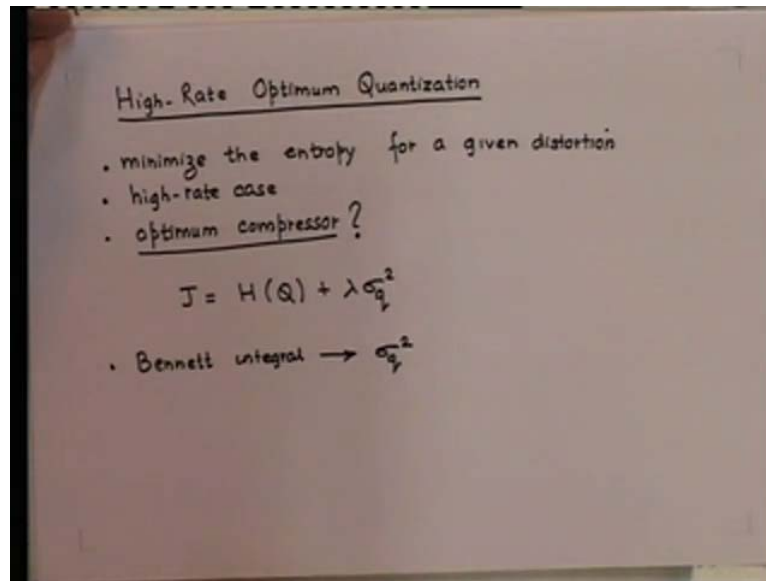 High-Rate Optimum Quantization
• minimize the entropy for a given distortion
• high-rate case
• optimum compressor?
J = H(Q) + λσ_q²
• Bennett integral → σ_q²